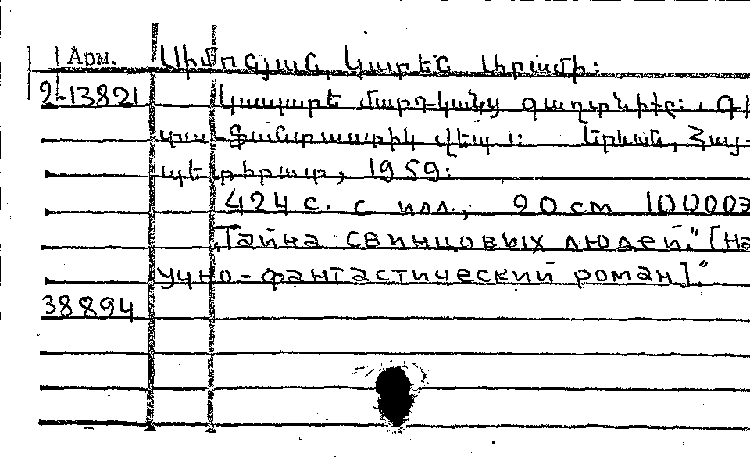 Арм. Սիմոնյան Կարեն Արամի:
2-13821 Կապարե մարդկանց գաղտնիքը: Գի
տա-ֆանտաստիկ վեպ: Երևան, Հայ-
պետհրատ, 1959:
424 с. с илл., 20 см 10000э
"Тайна свинцовых людей." [На
учно-фантастический роман]."
38894